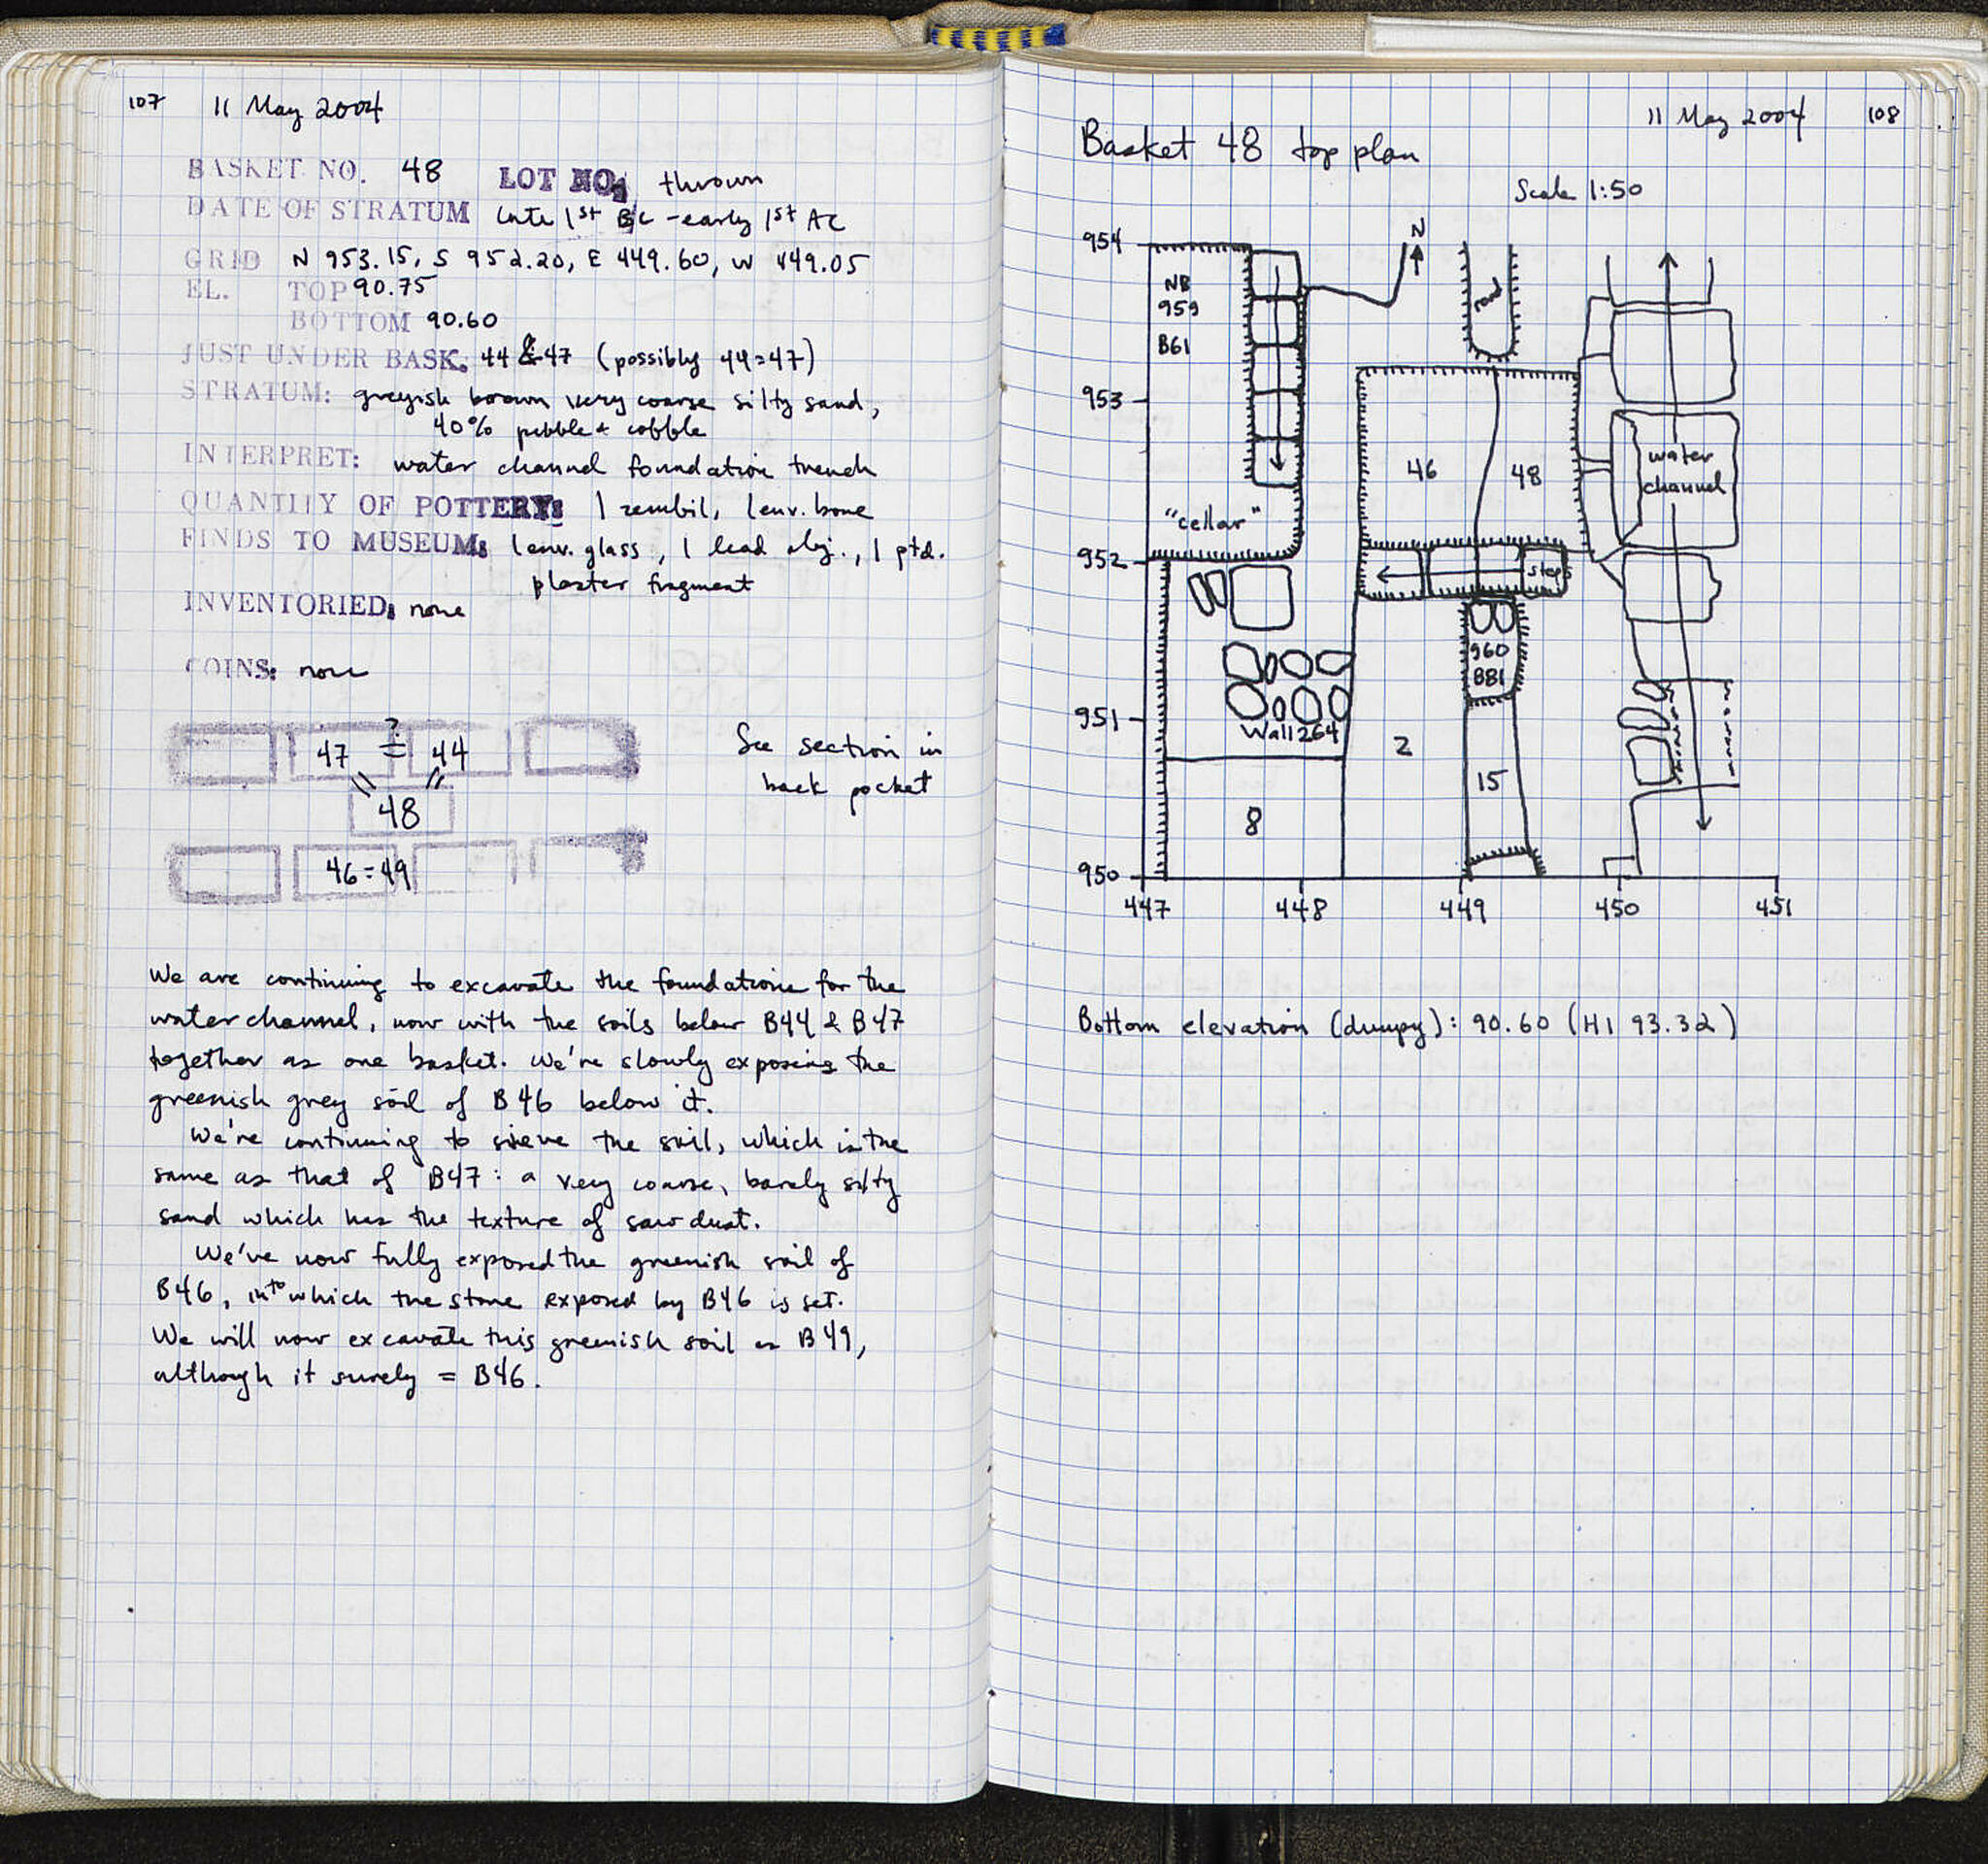 107 11 May 2004
BASKET NO. 48 LOT NO. thrown
DATE OF STRATUM late 1st BC - early 1st AC
GRID N 953.15, S 952.20, E 449.60, W 449.05
EL. TOP 90.75
BOTTOM 90.60
JUST UNDER BASK. 44 & 47 (possibly 44=47)
STRATUM: greyish brown very coarse silty sand,
40% pebble + cobble
INTERPRET: water channel foundation trench
QUANTITY OF POTTERY: 1 zembil, 1 env. bone
FINDS TO MUSEUM: 1 env. glass, 1 lead obj., 1 ptd.
plaster fragment
INVENTORIED: none
COINS: none
47 =? 44
48
46=49
See section in
back pocket
We are continuing to excavate the foundations for the
water channel, now with the soils below B44 & B47
together as one basket. We're slowly exposing the
greenish grey soil of B46 below it.
We're continuing to sieve the soil, which is the
same as that of B47: a very coarse, barely silty
sand which has the texture of sawdust.
We've now fully exposed the greenish soil of
B46, into which the stone exposed by B46 is set.
We will now excavate this greenish soil as B49,
although it surely = B46.
11 May 2004 108
Basket 48 top plan
Scale 1:50
N
954
NB
959
B61
953
46
48
water
channel
"cellar"
952
steps
960
B81
951
Wall 264
2
15
8
950
447 448 449 450 451
Bottom elevation (dumpy): 90.60 (HI 93.32)